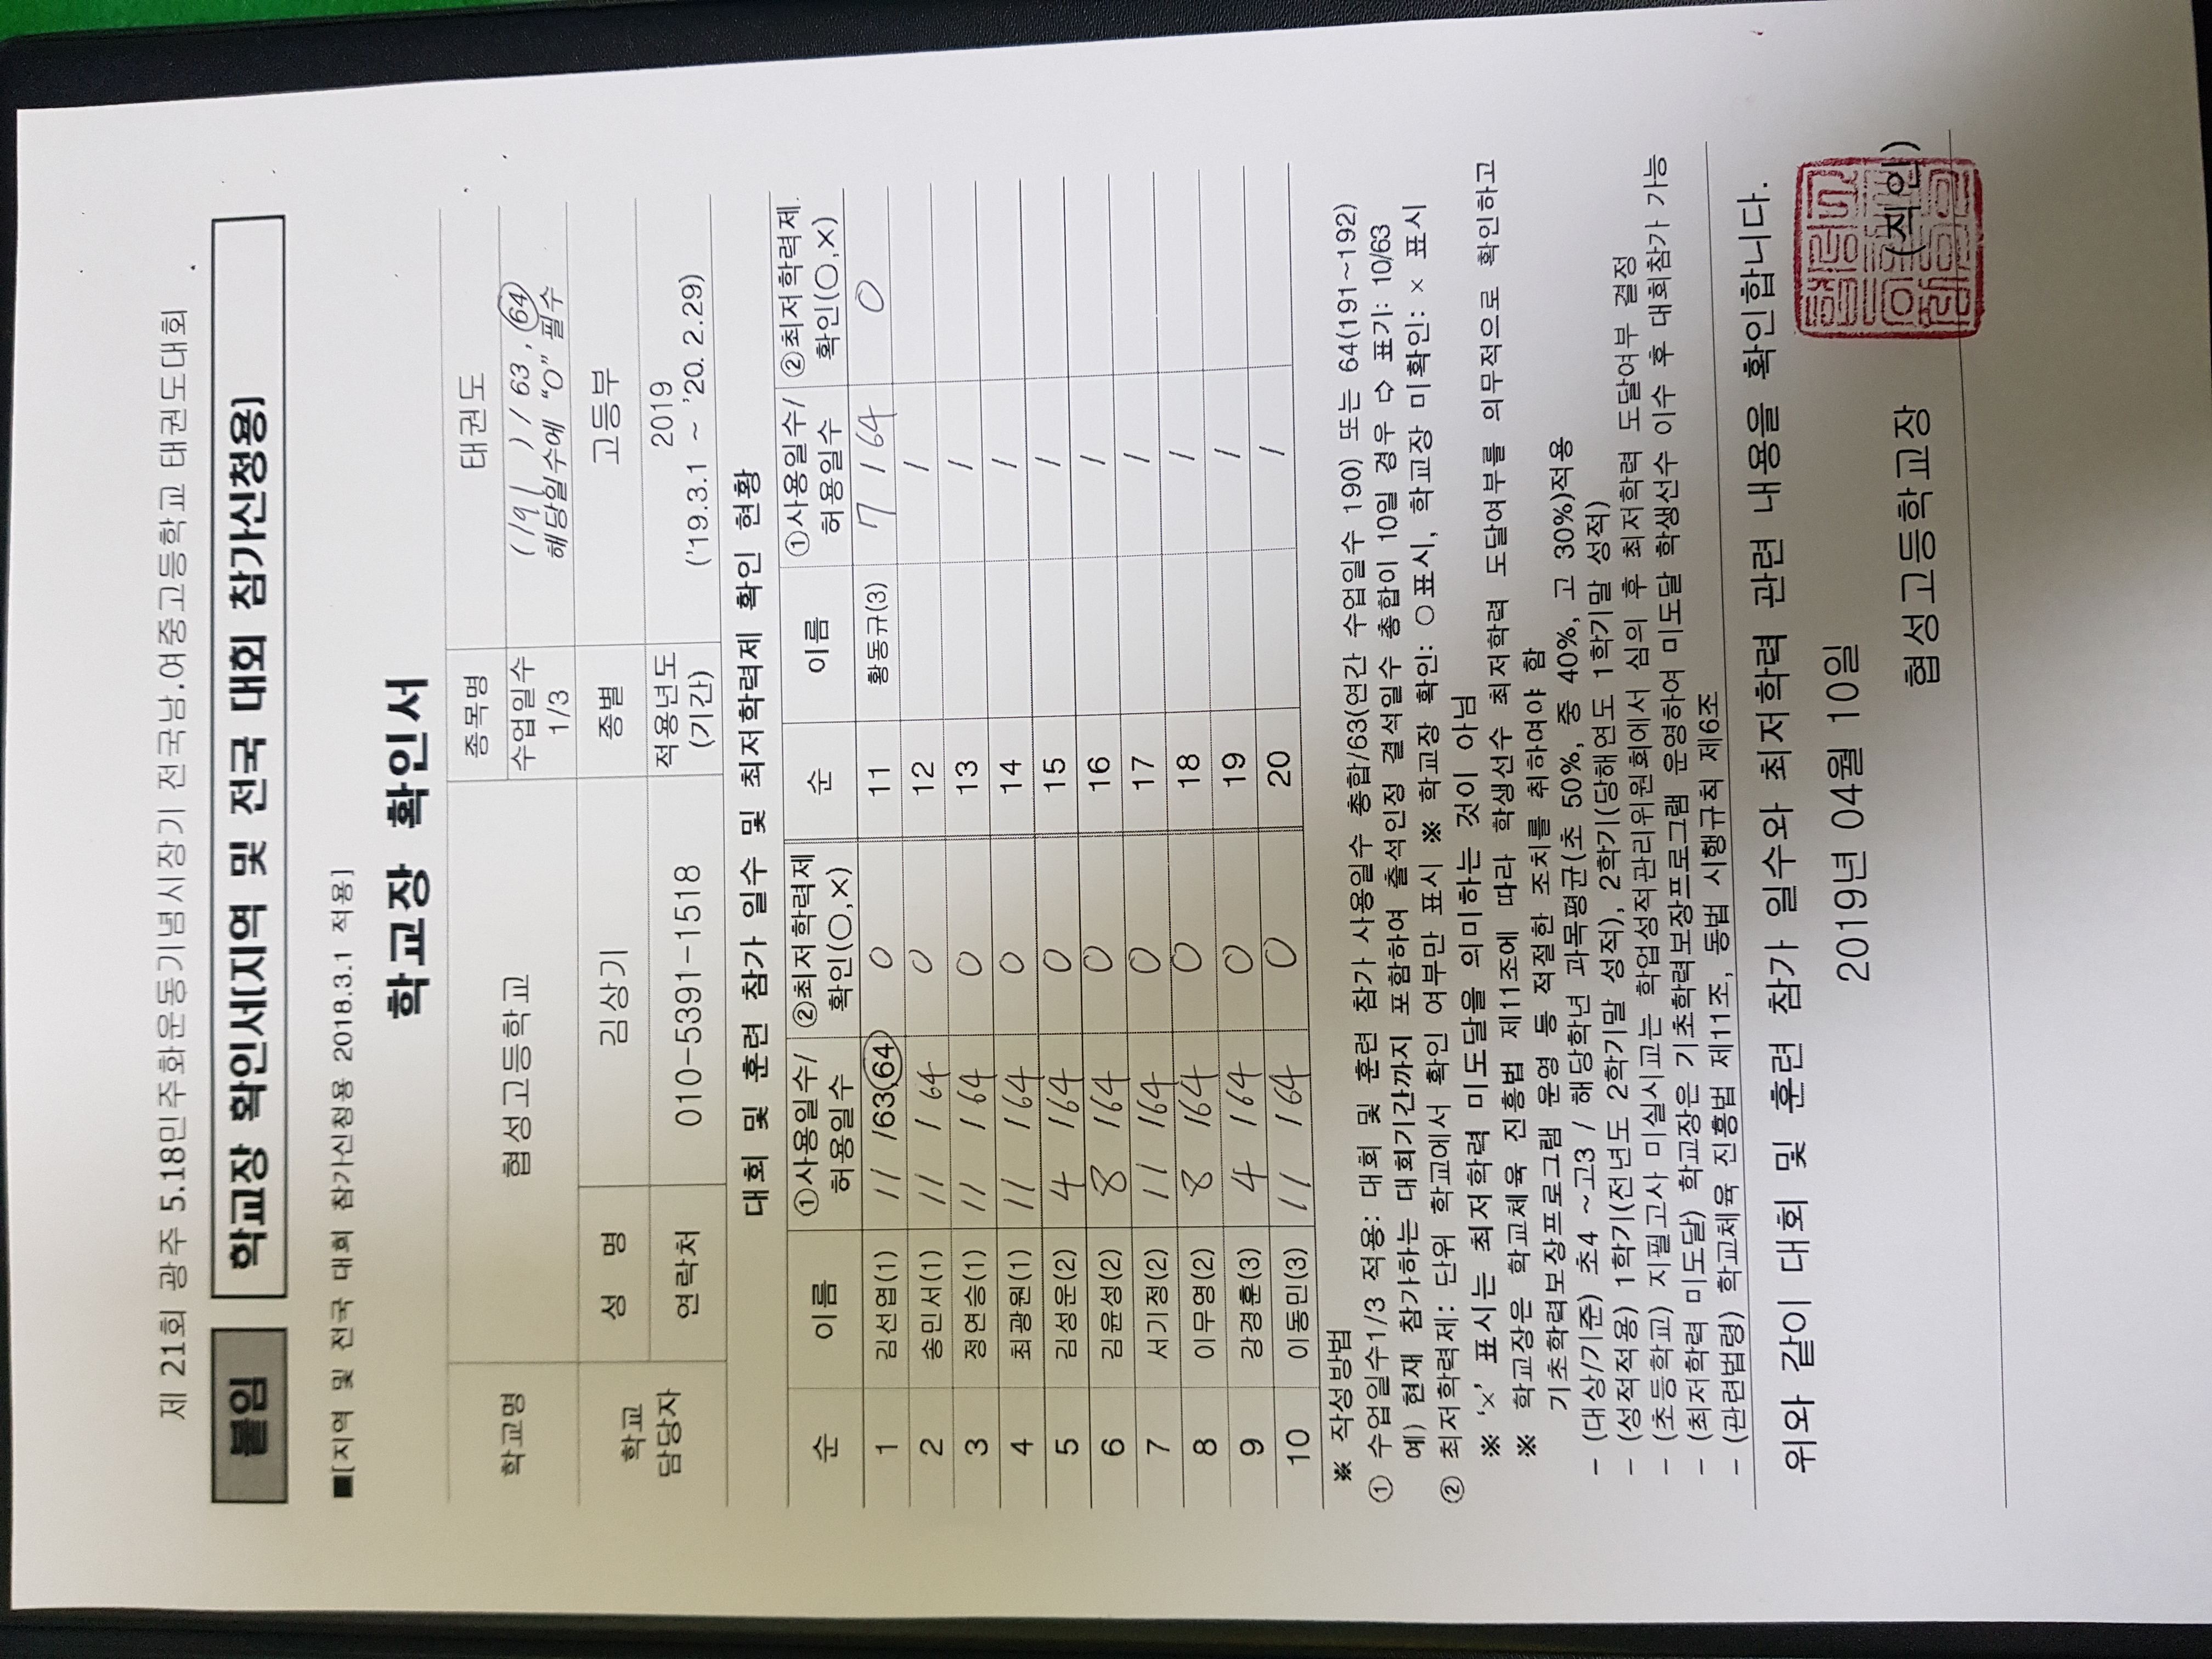 제 21회 광주 5.18민주화운동기념시장기 전국남.여중고등학교 태권도대회
붙임 학교장 확인서(지역 및 전국 대회 참가신청용)
■[지역 및 전국 대회 참가신청용 2018.3.1 적용]
학교장 확인서
학교명 협성고등학교 종목명 태권도
수업일수 1/3 (191)/63, 64 해당일수에 "O" 필수
학교 담당자 성 명 김상기 종별 고등부
연락처 010-5391-1518 적용년도 (기간) 2019 ('19.3.1 ~ '20.2.29)
대회 및 훈련 참가 일수 및 최저학력제 확인 현황
순 이름 ①사용일수/허용일수 ②최저학력제 확인(○,×) 순 이름 ①사용일수/허용일수 ②최저학력제 확인(○,×)
1 김선엽(1) 11 /63,64 ○ 11 황동규(3) 7 / 64 ○
2 송민서(1) 11 / 64 ○ 12 /
3 정연승(1) 11 / 64 ○ 13 /
4 최광원(1) 11 / 64 ○ 14 /
5 김성운(2) 4 / 64 ○ 15 /
6 김윤성(2) 8 / 64 ○ 16 /
7 서기정(2) 11 / 64 ○ 17 /
8 이무영(2) 8 / 64 ○ 18 /
9 강경훈(3) 4 / 64 ○ 19 /
10 이동민(3) 11 / 64 ○ 20 /
※ 작성방법
① 수업일수1/3 적용: 대회 및 훈련 참가 사용일수 총합/63(연간 수업일수 190) 또는 64(191~192)
예) 현재 참가하는 대회기간까지 포함하여 출석인정 결석일수 총합이 10일 경우 ⇨ 표기: 10/63
② 최저학력제: 단위 학교에서 확인 여부만 표시 ※ 학교장 확인: ○표시, 학교장 미확인: × 표시
※ '×' 표시는 최저학력 미도달을 의미하는 것이 아님
※ 학교장은 학교체육 진흥법 제11조에 따라 학생선수 최저학력 도달여부를 의무적으로 확인하고
기초학력보장프로그램 운영 등 적절한 조치를 취하여야 함
- (대상/기준) 초4 ~고3 / 해당학년 과목평균(초 50%, 중 40%, 고 30%)적용
- (성적적용) 1학기(전년도 2학기말 성적), 2학기(당해연도 1학기말 성적)
- (초등학교) 지필고사 미실시교는 학업성적관리위원회에서 심의 후 최저학력 도달여부 결정
- (최저학력 미도달) 학교장은 기초학력보장프로그램 운영하여 미도달 학생선수 이수 후 대회참가 가능
- (관련법령) 학교체육 진흥법 제11조, 동법 시행규칙 제6조
위와 같이 대회 및 훈련 참가 일수와 최저학력 관련 내용을 확인합니다.
2019년 04월 10일
협성고등학교장 (직인)